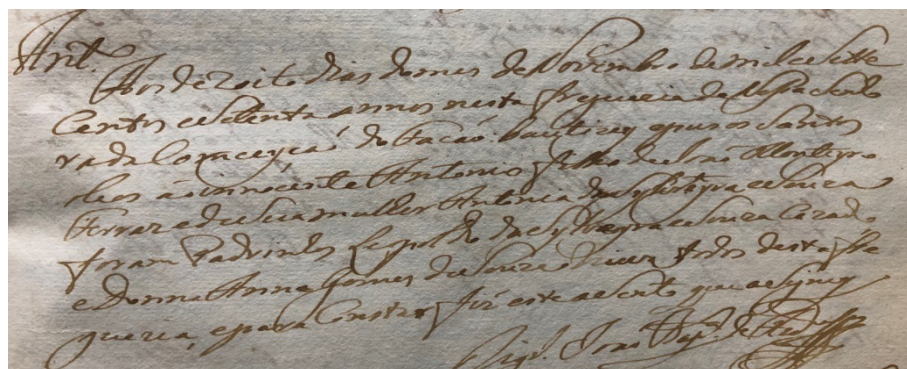 Ant.
Aos dezoito dias do mes de Novembro de mil e sette
centos e setenta annos nesta freguezia da Nossa Senho
ra da Comceyçaõ do Facaõ bautizey e pus os santos
leos a o innocente Antonio filho de Joaõ Monteyro
Ferraz e de sua mulher Antonia da Sylveyra e Souza
foram Padrinhos Leopoldo da Sylveyra e Souza cazado
e Donna Anna Gomes de Souza todos desta fre
guezia, e para constar fiz este asento que asigney
Joaõ